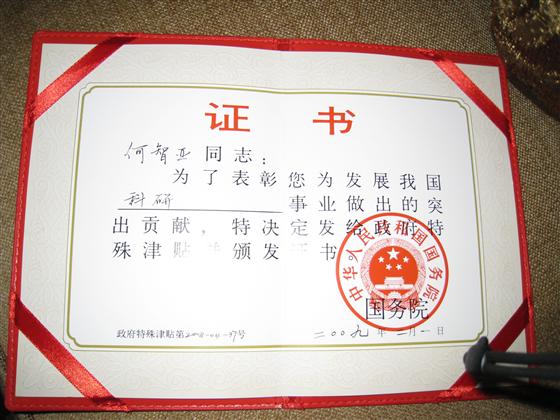 证书
何智亚同志：
为了表彰您为发展我国
科研事业做出的突
出贡献，特决定发给政府特
殊津贴并颁发证书
中华人民共和国国务院
国务院
政府特殊津贴第号
二〇〇九年二月一日